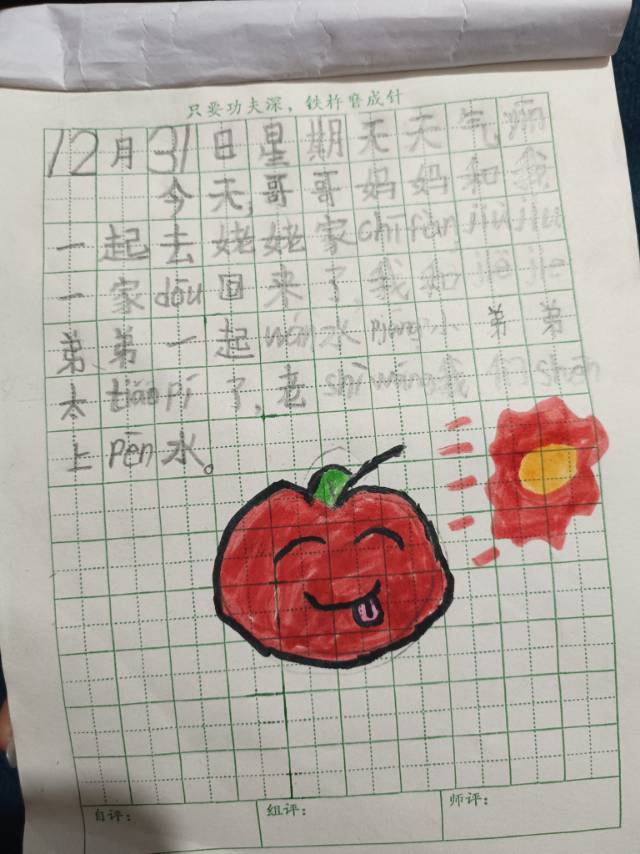 只要功夫深，铁杵磨成针
12月31日星期天天气yīn
今天，哥哥妈妈和我
一起去姥姥家chīfàn，jiùjiu
一家dōu回来了，我和jiějie
弟弟一起wán水，小弟弟
太tiáopí了，老shìwǎng我们shēn
上pēn水。
自评：
组评：
师评：